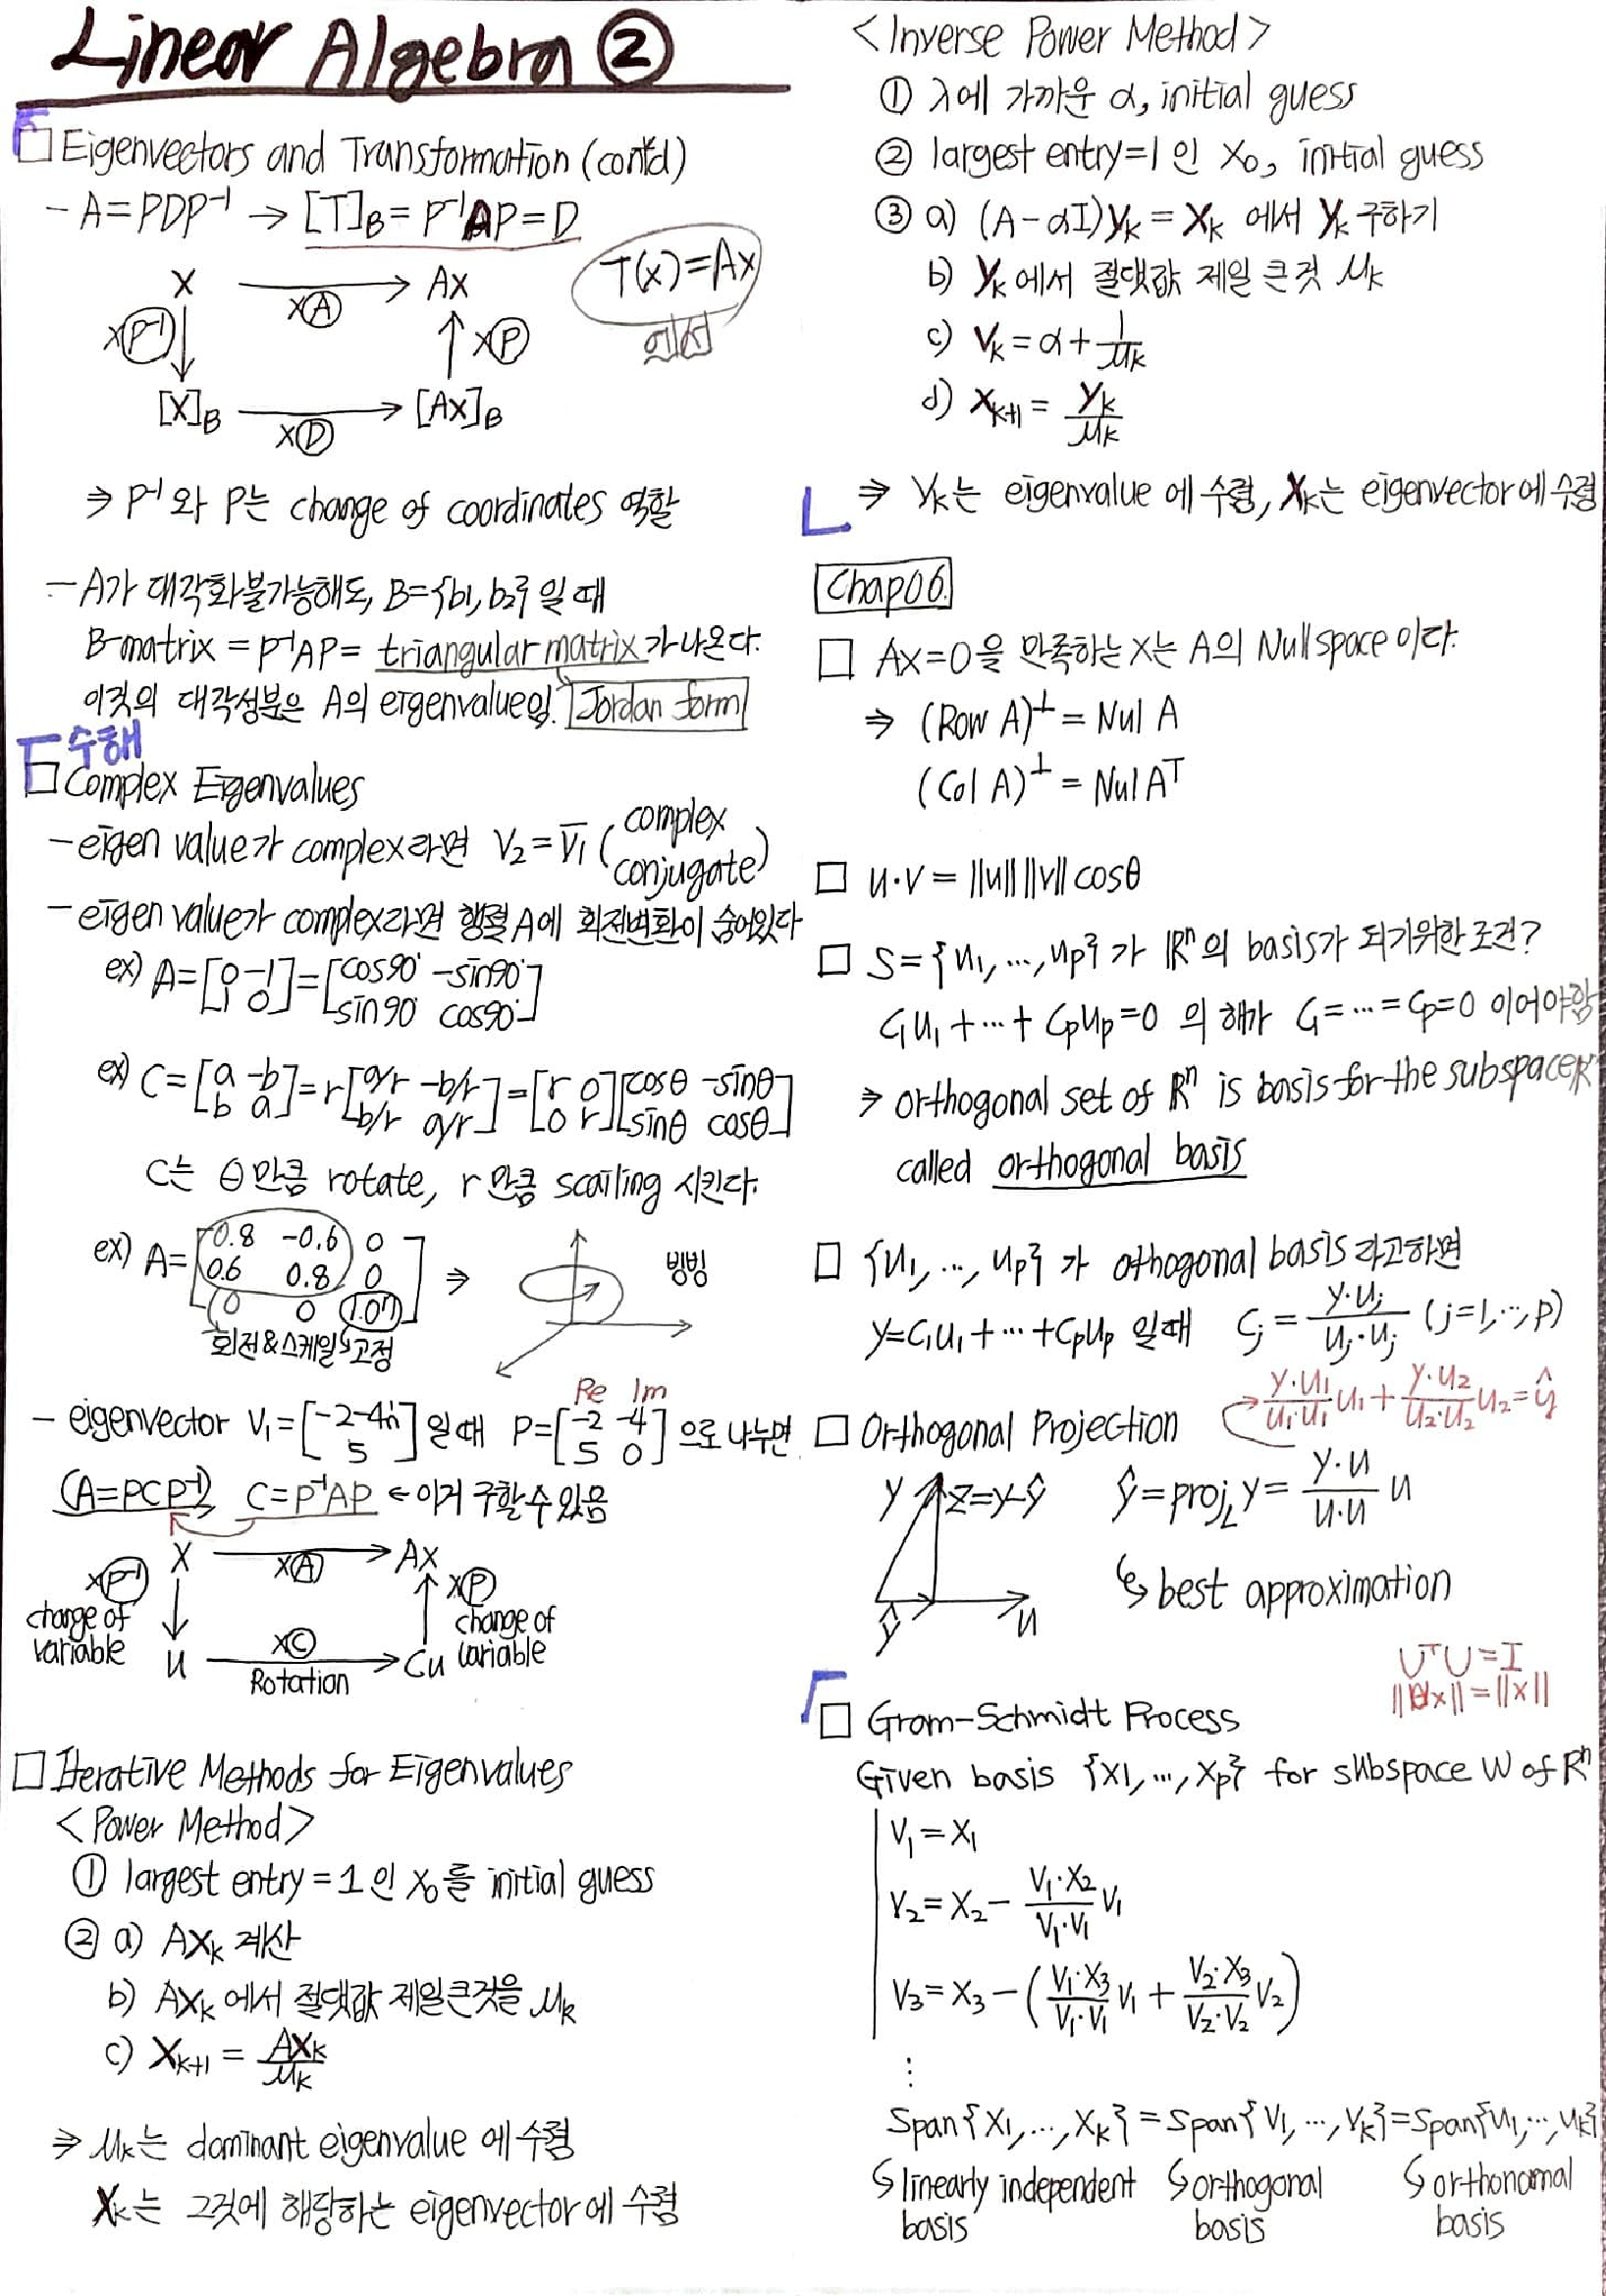 Linear Algebra ②
□ Eigenvectors and Transformation (cont'd)
- A=PDP⁻¹ → [T]_B = P⁻¹AP = D
T(x)=Ax 에서
x →(×Ⓐ) Ax
×(P⁻¹) ↓ ↑ ×Ⓟ
[x]_B →(×Ⓓ) [Ax]_B
⇒ P⁻¹와 P는 change of coordinates 역할
- A가 대각화불가능해도, B={b1, b2} 일 때
B-matrix = P⁻¹AP = triangular matrix 가 나온다.
이것의 대각성분은 A의 eigenvalue임. Jordan form
수해
□ Complex Eigenvalues
- eigen value가 complex라면 V₂ = V̄₁ (complex conjugate)
- eigen value가 complex라면 행렬 A에 회전변환이 숨어있다
ex) A = [0 -1; 1 0] = [cos90° -sin90°; sin90° cos90°]
ex) C = [a -b; b a] = r[a/r -b/r; b/r a/r] = [r 0; 0 r][cosθ -sinθ; sinθ cosθ]
C는 θ만큼 rotate, r만큼 scailing 시킨다.
ex) A = [0.8 -0.6 0; 0.6 0.8 0; 0 0 1.07] ⇒ 빙빙
회전&스케일 고정
Re Im
- eigenvector V₁ = [-2-4i; 5] 일 때 P = [-2 -4; 5 0] 으로 나누면
(A=PCP⁻¹) C=P⁻¹AP ← 이거 구할 수 있음
x →(×Ⓐ) Ax
×(P⁻¹) change of variable ↓ ↑ ×Ⓟ change of variable
u →(×Ⓒ Rotation) Cu
□ Iterative Methods for Eigenvalues
<Power Method>
① largest entry = 1 인 x₀를 initial guess
② a) Axₖ 계산
b) Axₖ 에서 절댓값 제일큰것을 μₖ
c) xₖ₊₁ = Axₖ/μₖ
⇒ μₖ는 dominant eigenvalue 에 수렴
xₖ는 그것에 해당하는 eigenvector에 수렴
<Inverse Power Method>
① λ에 가까운 α, initial guess
② largest entry=1 인 x₀, initial guess
③ a) (A-αI)yₖ = xₖ 에서 yₖ 구하기
b) yₖ에서 절댓값 제일 큰것 μₖ
c) Vₖ = α + 1/μₖ
d) xₖ₊₁ = yₖ/μₖ
⇒ Vₖ는 eigenvalue 에 수렴, xₖ는 eigenvector에 수렴
Chap06.
□ Ax=0을 만족하는 x는 A의 Null space 이다.
⇒ (Row A)^⊥ = Nul A
(Col A)^⊥ = Nul A^T
□ u·v = ||u|| ||v|| cosθ
□ S={u₁, ..., uₚ} 가 ℝⁿ의 basis가 되기위한 조건?
c₁u₁ + ... + cₚuₚ=0 의 해가 c₁=...=cₚ=0 이어야함
⇒ orthogonal set of ℝⁿ is basis for the subspace ℝⁿ
called orthogonal basis
□ {u₁, ..., uₚ} 가 othogonal basis 라고하면
y=c₁u₁+...+cₚuₚ 일때 cⱼ = (y·uⱼ)/(uⱼ·uⱼ) (j=1,...,p)
→ (y·u₁)/(u₁·u₁) u₁ + (y·u₂)/(u₂·u₂) u₂ = ŷ
□ Orthogonal Projection
y z=y-ŷ ŷ = proj_L y = (y·u)/(u·u) u
↳ best approximation
ŷ u
UᵀU=I
||Ux||=||x||
□ Gram-Schmidt Process
Given basis {x1, ..., xp} for subspace W of ℝⁿ
V₁ = x₁
V₂ = x₂ - (V₁·x₂)/(V₁·V₁) V₁
V₃ = x₃ - ((V₁·x₃)/(V₁·V₁) V₁ + (V₂·x₃)/(V₂·V₂) V₂)
⋮
Span{x₁, ..., xₖ} = Span{V₁, ..., Vₖ} = Span{u₁, ..., uₖ}
↳ linearly independent basis ↳ orthogonal basis ↳ orthonormal basis